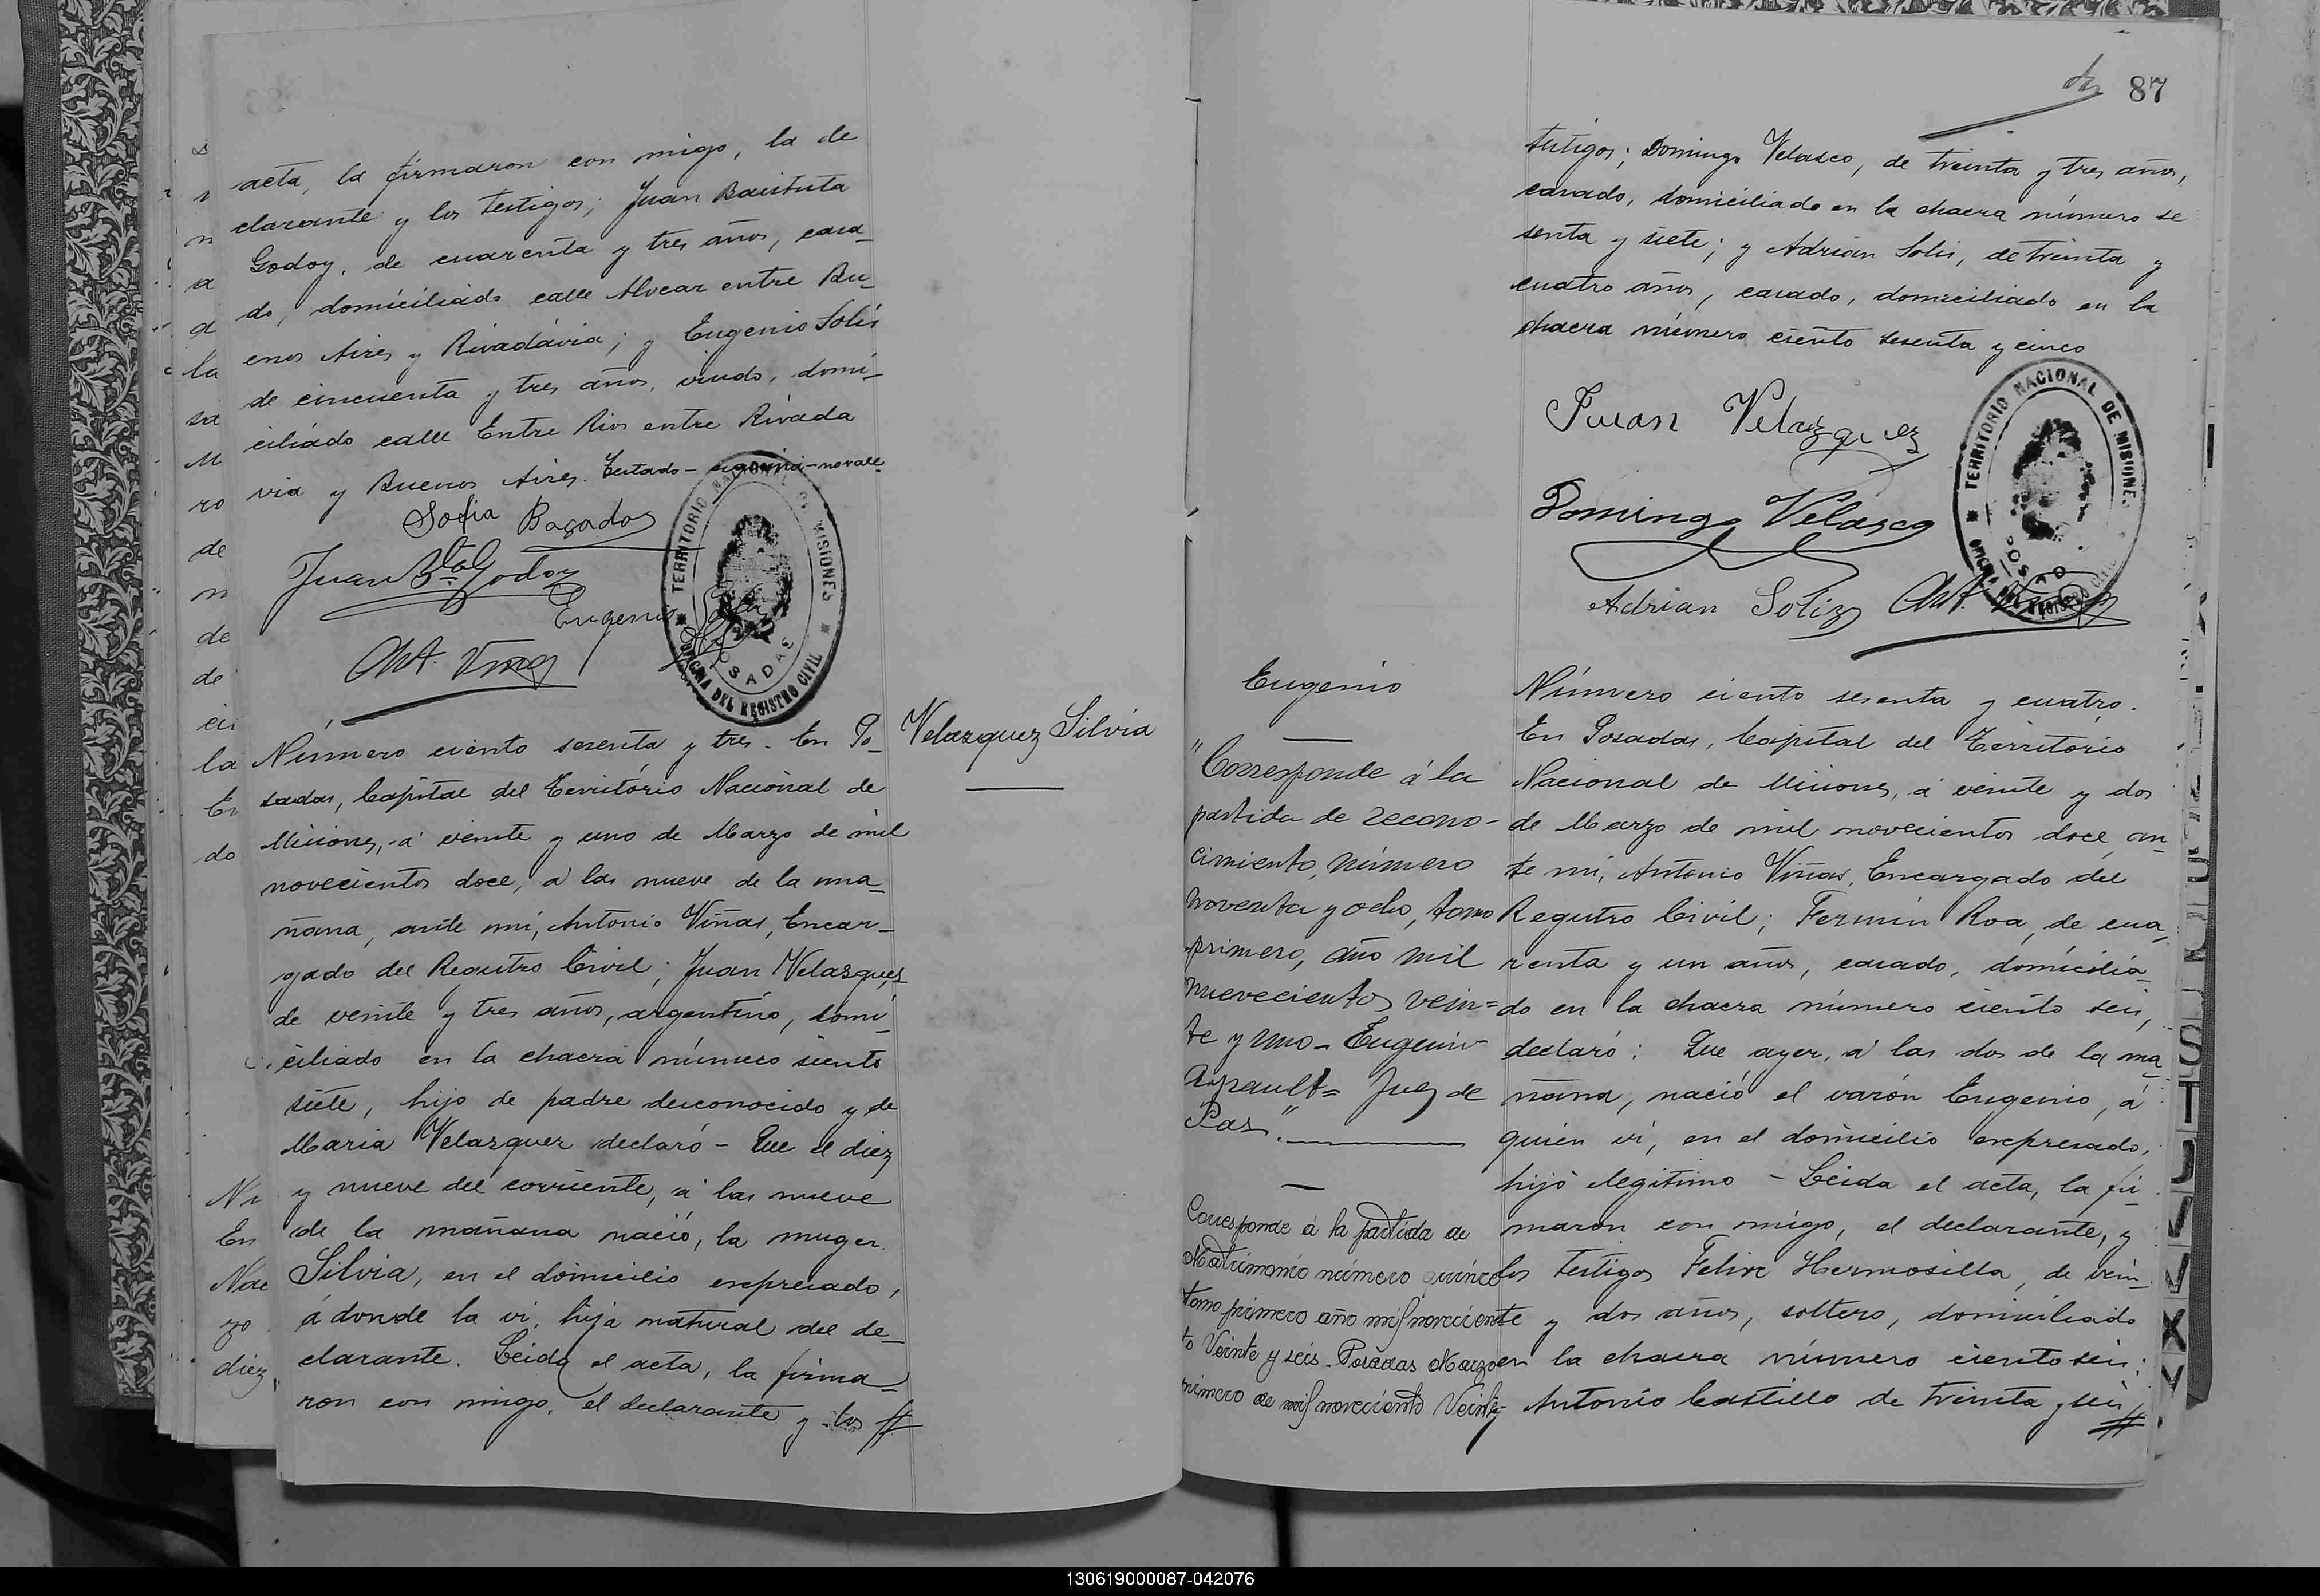 acta, la firmaron con migo, la de
clarante y los testigos; Juan Bautista
Godoy, de cuarenta y tres años, casa_
do, domiciliado calle Alvear entre Bu_
enos Aires y Rivadávia; y Eugenio Solis
de cincuenta y tres años, viudo, domi_
ciliado calle Entre Rios entre Rivada
via y Buenos Aires. Testado - - no vale
Sofia Bagados
Juan Bta Godoy
Eugenio Solis
Ant. Viñas
TERRITORIO NACIONAL DE MISIONES
POSADAS
OFICINA DEL REGISTRO CIVIL
Velazquez Silvia
Número ciento sesenta y tres. En Po_
sadas, Capital del Território Nacional de
Misiones, á veinte y uno de Marzo de mil
novecientos doce, á las nueve de la ma_
ñana, ante mi, Antonio Viñas, Encar_
gado del Registro Civil; Juan Velasques
de veinte y tres años, argentino, domi_
ciliado en la chacra número siento
siete, hijo de padre desconocido y de
Maria Velazquez declaró - Que el diez
y nueve del corriente, á las nueve
de la mañana nació, la muger
Silvia, en el domicilio expresado,
á donde la vi, hija natural del de_
clarante. Leida el acta, la firma_
ron con migo, el declarante y los #
la
sa
M
ro
de
m
de
de
la
En
do
En
zo
diez
87
testigos; Domingo Velasco, de treinta y tres años,
casado, domiciliado en la chacra número se
senta y siete; y Adrian Solis, de treinta y
cuatro años, casado, domiciliado en la
chacra número ciento sesenta y cinco
Juan Velazquez
Domingo Velasco
Adrian Soliz Ant.
TERRITORIO NACIONAL DE MISIONES
POSADAS
Eugenio
"Corresponde á la
partida de recono-
cimiento, número
noventa y ocho, tomo
primero, año mil
nuevecientos vein=
te y uno_ Eugenio
= Juez de
Paz".
Corresponde á la partida de
Matrimonio número quince
tomo primero año mil novecien
to Veinte y seis. Posadas Marzo
primero de mil noveciento Veinte
Número ciento sesenta y cuatro.
En Posadas, Capital del Territorio
Nacional de Misiones, á veinte y dos
de Marzo de mil novecientos doce, an_
te mi, Antonio Viñas, Encargado del
Registro Civil; Fermin Roa, de cua_
renta y un años, casado, domicilia_
do en la chacra número ciento seis,
declaró: Que ayer, á las dos de la ma_
ñana, nació el varón Eugenio, á
quien vi, en el domicilio expresado,
hijo legitimo - Leida el acta, la fir_
maron con migo, el declarante, y
los testigos Felipe Hermosilla, de vein_
te y dos años, soltero, domiciliado
en la chacra número ciento seis;
y Antonio Castillo de treinta y seis #
S
T
J
V
X
130619000087-042076